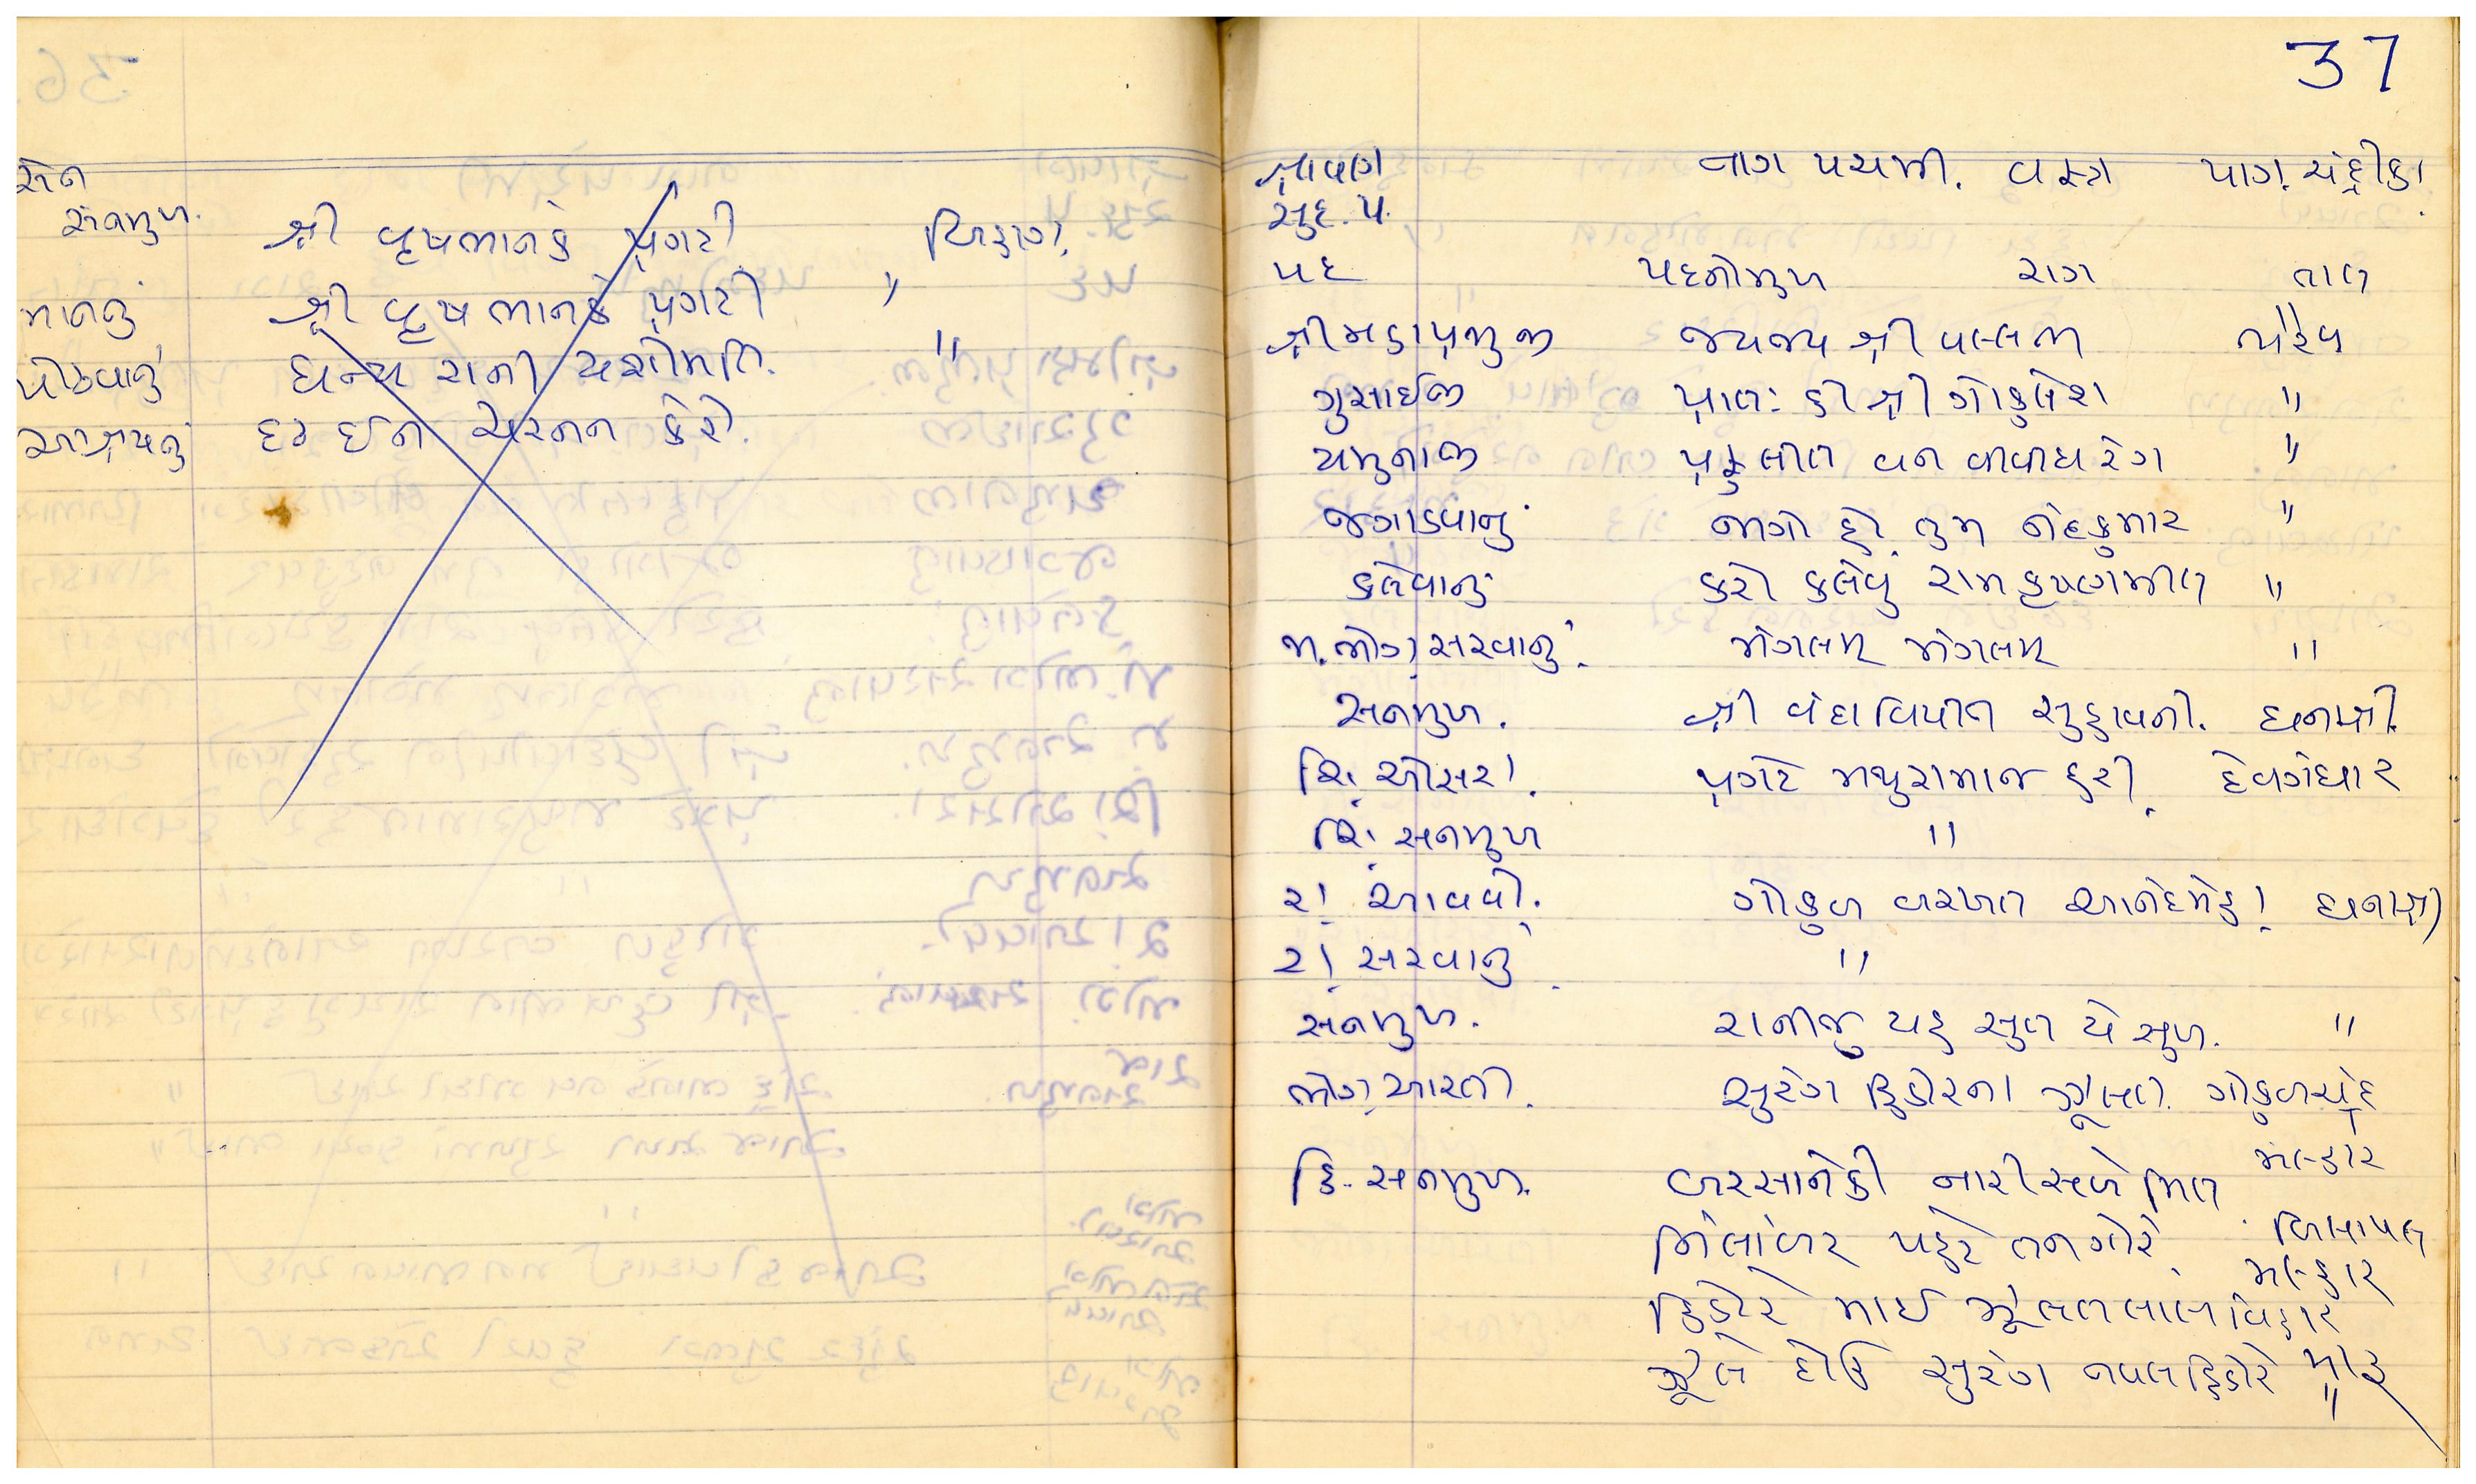 સેન
સનમુખ. શ્રી વૃષભાનકે પ્રગટી
માનનું શ્રી વૃષભાનકે પ્રગટી "
પોઢવાનું ધન્ય રાની યશોમતિ. "
આશ્રયનું દ્રઢ ઈન ચરનન કેરો.
37
શ્રાવણ સુદ. ૫. નાગ પચમી. વસ્ત્ર પાગ. ચંદ્રીકા.
પદ પદનોમુખ રાગ તાલ
શ્રીમહાપ્રભુજી જયજય શ્રી વલ્લભ ભૈરવ
ગુસાઈજી પ્રાત: હી શ્રી ગોકુલેશ "
યમુનાજી પ્રફુલીત વન વીવીધ રંગ "
જગાડવાનું જાગો હો તુમ નંદકુમાર "
કલેવાનું કરો કલેવું રામ કૃષ્ણમીલ "
મ. ભોગ સરવાનું. મંગલમ મંગલમ "
સનમુખ. શ્રી વંદાવિપીન સુહાવનો. ધનાશ્રી.
શિ. ઓસરા. પ્રગટે મથુરામાજ હરી. દેવગંધાર
શિ. સનમુખ "
રા. આવવો. ગોકુળ વરખત આનંદમેહા. ધનાશ્રી
રા. સરવાનું. "
સનમુખ. રાનીજુ યહ સુત યે સુખ. "
ભોગ. આરતી. સુરંગ હિંડોરના ઝૂલત. ગોકુળચંદ
મલ્હાર
હિ. સનમુખ. બરસાનેકી નારી સબે મિલ
નિલાંબર પહેરે તન ગોરે. બિલાવલ
મલ્હાર
હિંડોરે માઈ ઝૂલતલાલબિહારી
ઝૂલે દોઉ સુરંગ નવલહિંડોરે "